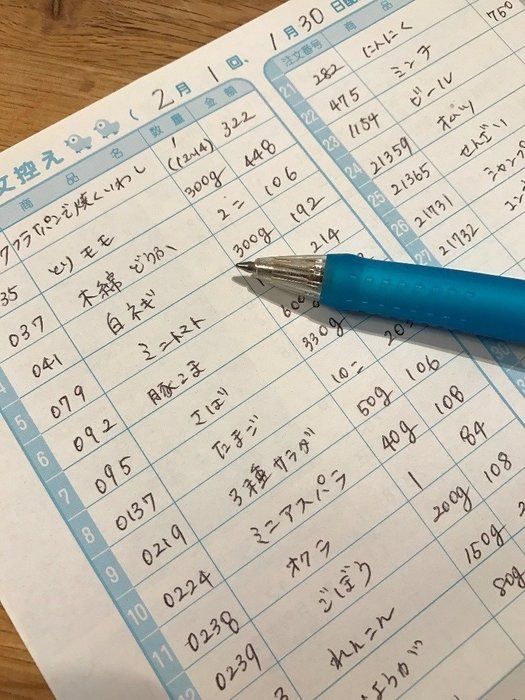 文控え ( 2月 1回、 1月30日配
商品名 数量 金額
フライパンで焼くいわし 1 (12~14) 322
35 とりモモ 300g 448
037 木綿どうふ 2コ 106
041 白ネギ 300g 192
5 079 ミニトマト 214
6 092 豚こま 600
7 095 さば 330g
8 0137 たまご 10コ
9 0219 3種サラダ 50g 106
10 0224 ミニアスパラ 40g 108
11 0238 オクラ 1 84
12 0239 ごぼう 200g 108
れんこん 150g
80g
注文番号 商品
21 282 にんにく 750
22 475 ミンチ
23 1154 ビール
24 21359 オムツ
25 21365 せんざい
26 21731 シャンプ
27 21732 コン